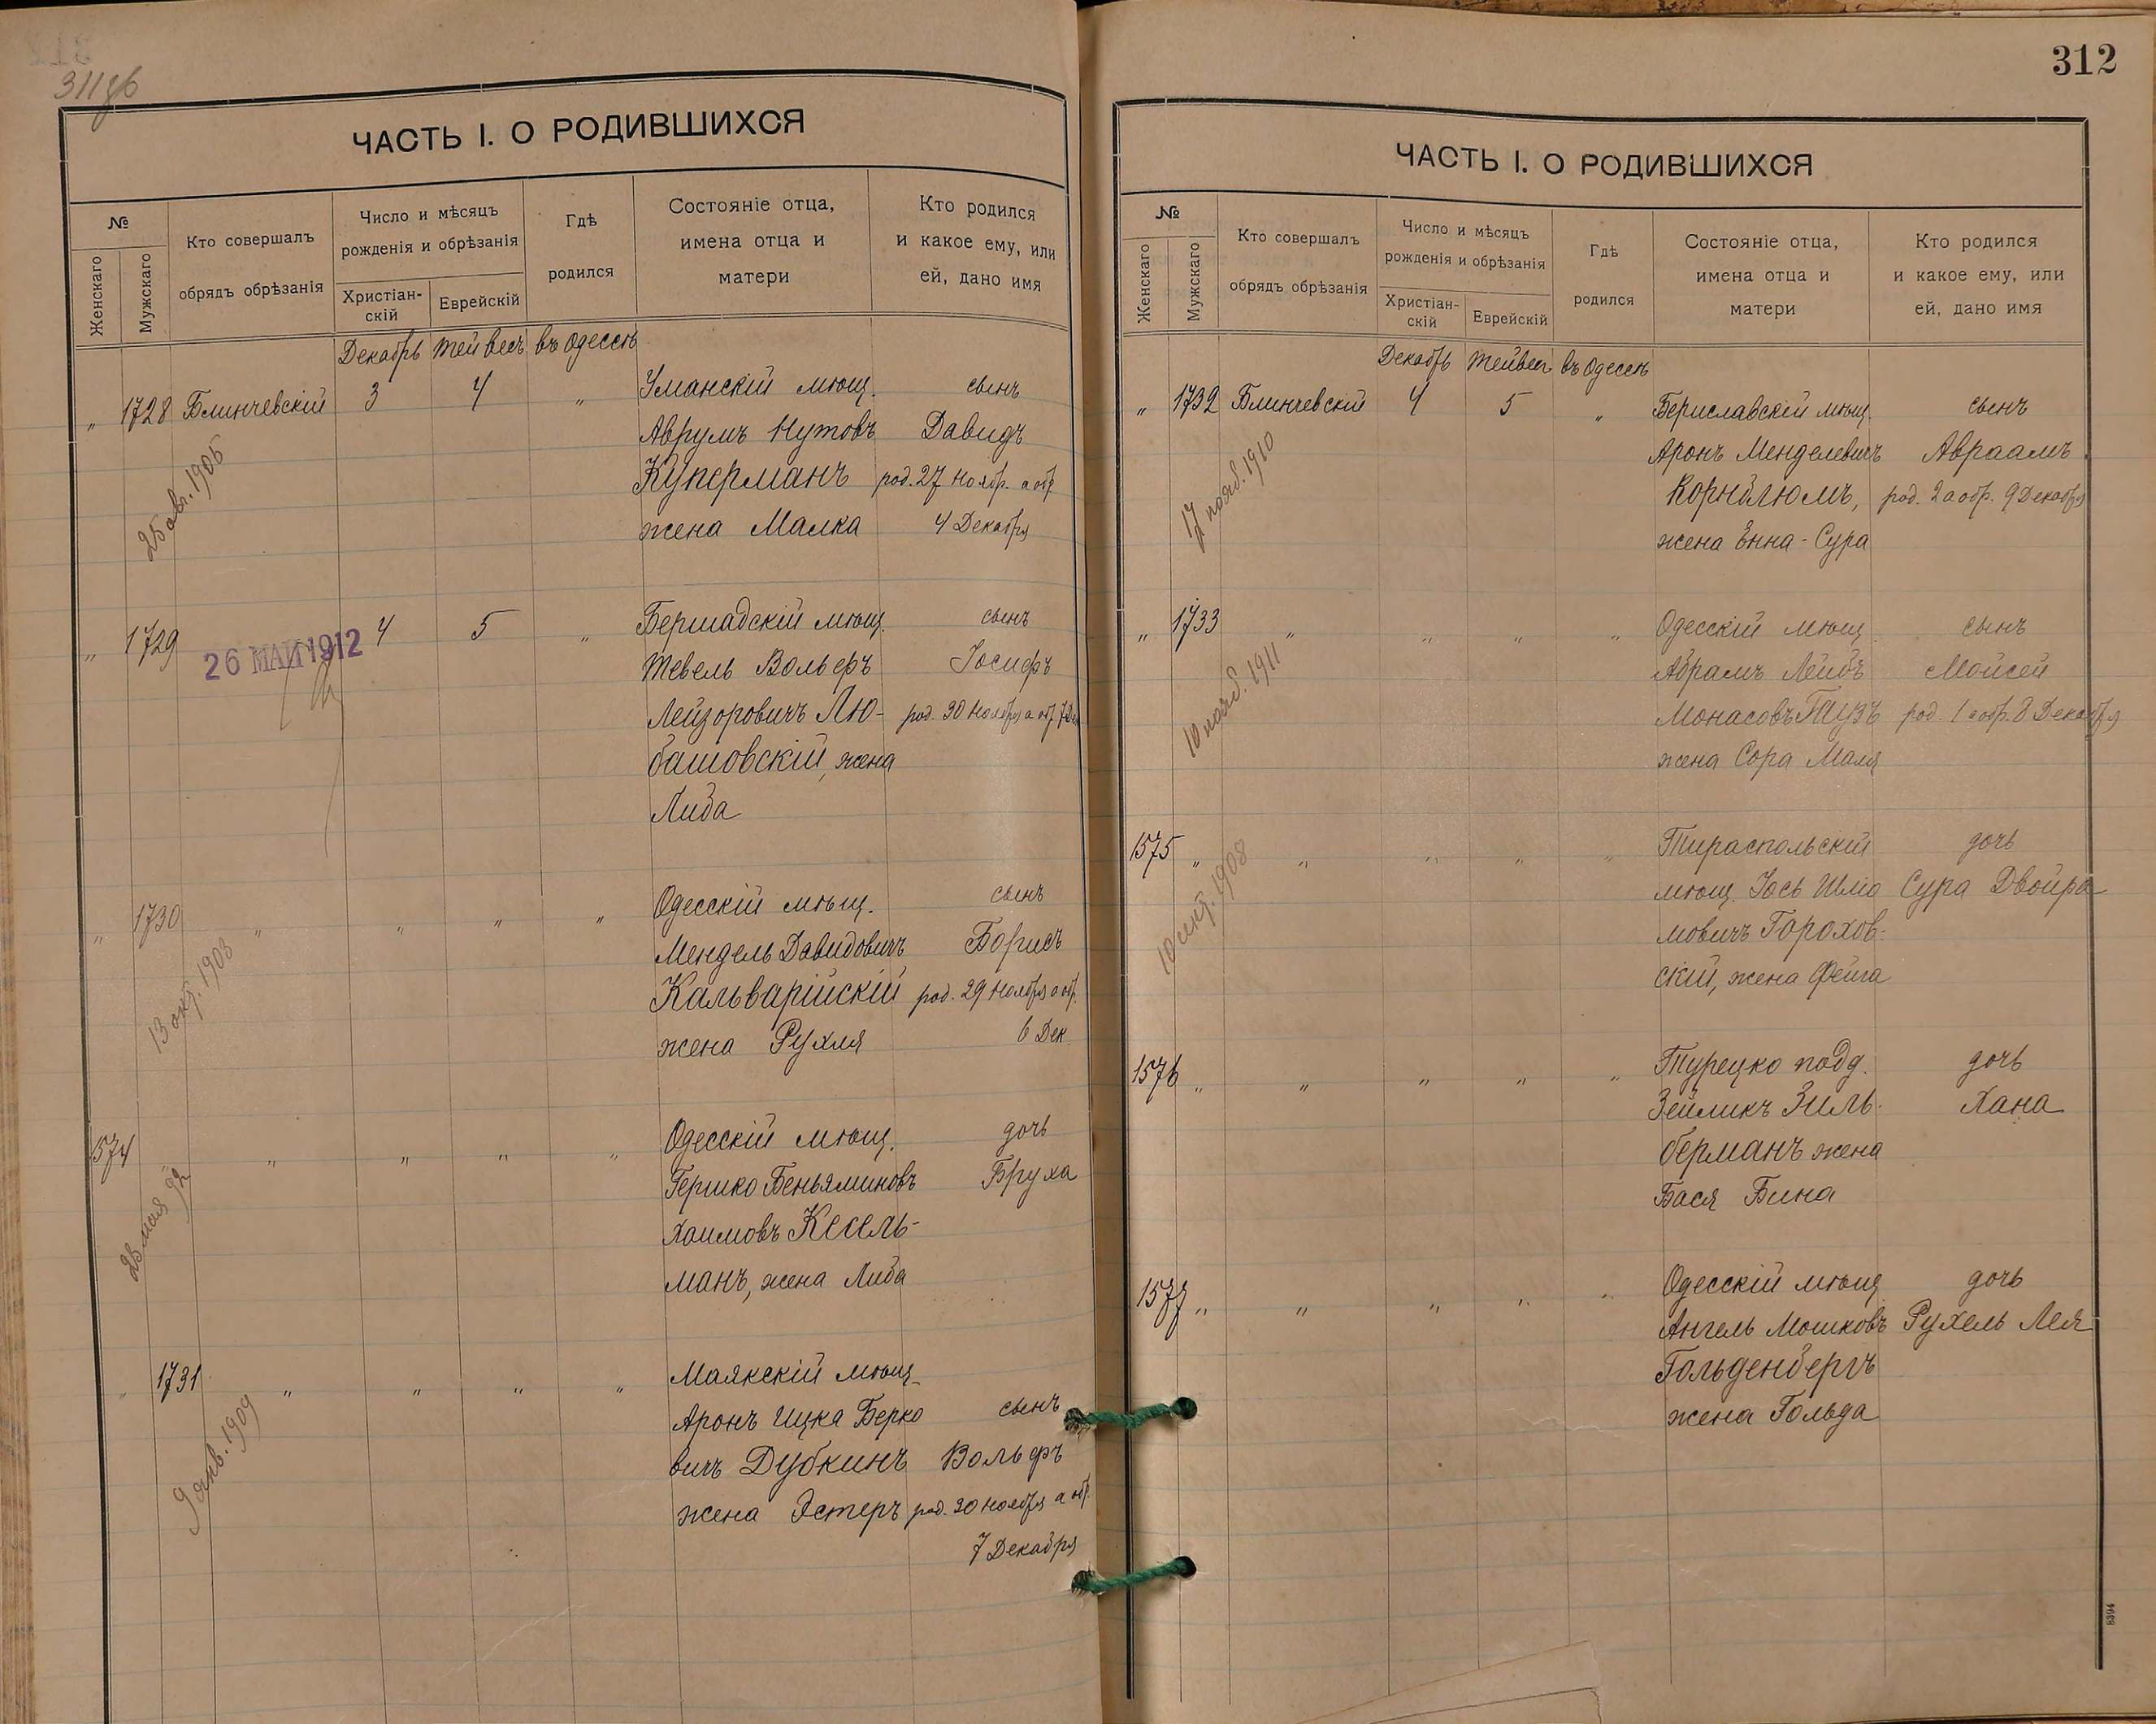 311 об
ЧАСТЬ I. О РОДИВШИХСЯ
№
Женскаго
Мужскаго
Кто совершалъ
обрядъ обрѣзанія
Число и мѣсяцъ
рожденія и обрѣзанія
Христіан-
скій
Еврейскій
Гдѣ
родился
Состояніе отца,
имена отца и
матери
Кто родился
и какое ему, или
ей, дано имя
Декабрь Тейвесъ въ Одессѣ
„ 1728 Блинчевскій 3 4 „ Уманскій мѣщ. сынъ
Аврумъ Нутовъ Давидъ
Куперманъ род. 27 Ноябр. а обр.
жена Малка 4 Декабря
25 авг. 1906
„ 1729 4 5 „ Бершадскій мѣщ. сынъ
26 МАЙ 1912
Тевель Вольфъ Іосифъ
Лейзоровичъ Лю- род. 30 Ноября а обр. 7 Дек
башовскій, жена
Либа
„ 1730 „ „ „ „ Одесскій мѣщ. сынъ
Мендель Давидовичъ Борисъ
Кальварійскій род. 29 Ноября а обр.
жена Рухля 6 Дек.
13 окт. 1903
1574 „ „ „ „ Одесскій мѣщ. дочь
Гершко Беньяминовъ Бруха
Хаимовъ Кесель-
манъ, жена Либа
28 мая 92
„ 1731 „ „ „ „ Маякскій мѣщ.
Аронъ Ицка Берко сынъ
вичъ Дубкинъ Вольфъ
жена Эстеръ род. 30 Ноября а обр.
7 Декабря
9 янв. 1909
312
ЧАСТЬ I. О РОДИВШИХСЯ
№
Женскаго
Мужскаго
Кто совершалъ
обрядъ обрѣзанія
Число и мѣсяцъ
рожденія и обрѣзанія
Христіан-
скій
Еврейскій
Гдѣ
родился
Состояніе отца,
имена отца и
матери
Кто родился
и какое ему, или
ей, дано имя
Декабрь Тейвесъ въ Одессѣ
„ 1732 Блинчевскій 4 5 „ Бериславскій мѣщ. сынъ
Аронъ Менделевичъ Авраамъ
Корнблюмъ, род. 2 а обр. 9 Декабря
жена Энна-Сура
17 нояб. 1910
„ 1733 „ „ „ „ Одесскій мѣщ. сынъ
Абрамъ Лейбъ Мойсей
Монасовъ Тузъ род. 1 а обр. 8 Декабря
жена Сора Маля
10 нояб. 1911
1575 „ „ „ „ „ Тираспольскій дочь
мѣщ. Іось Шлио Сура Двойра
мовичъ Горохов-
скій, жена Фейга
10 сент. 1908
1576 „ „ „ „ „ Турецко подд. дочь
Зейликъ Зиль- Хана
берманъ жена
Бася Бина
1577 „ „ „ „ „ Одесскій мѣщ дочь
Ангель Мошковъ Рухель Лея
Гольденбергъ
жена Гольда
8394